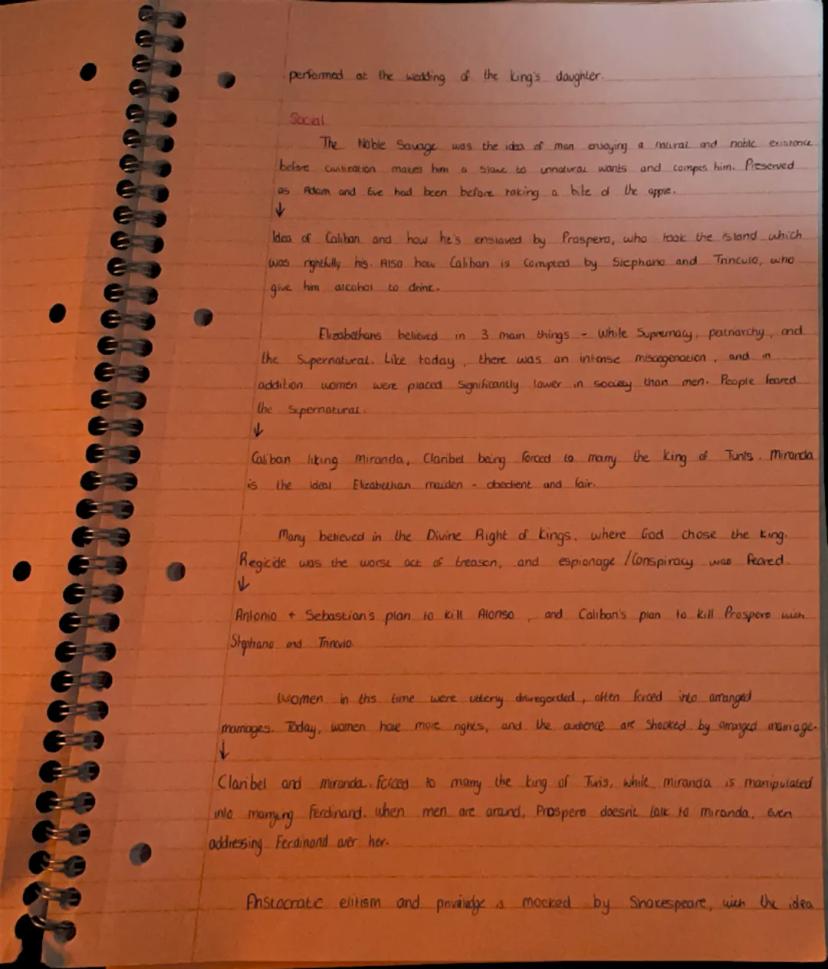 performed at the wedding of the king's daughter.
Social
The Noble Savage was the idea of man enjoying a natural and noble existence
before civilisation makes him a slave to unnatural wants and corrupts him. Preserved
as Adam and Eve had been before taking a bite of the apple.
↓
Idea of Caliban and how he's enslaved by Prospero, who took the island which
was rightfully his. Also how Caliban is corrupted by Stephano and Trinculo, who
give him alcohol to drink.
Elizabethans believed in 3 main things - White Supremacy, patriarchy, and
the Supernatural. Like today, there was an intense miscegenation, and in
addition women were placed significantly lower in society than men. People feared
the Supernatural.
↓
Caliban liking Miranda, Claribel being forced to marry the King of Tunis. Miranda
is the ideal Elizabethan maiden - obedient and fair.
Many believed in the Divine Right of Kings, where God chose the King.
Regicide was the worst act of treason, and espionage / Conspiracy was feared.
↓
Antonio + Sebastian's plan to kill Alonso, and Caliban's plan to kill Prospero with
Stephano and Trinculo.
Women in this time were utterly disregarded, often forced into arranged
marriages. Today, women have more rights, and the audience are shocked by arranged marriage.
↓
Claribel and miranda. forced to marry the King of Tunis, while miranda is manipulated
into marrying Ferdinand. when men are around, Prospero doesn't talk to miranda, even
addressing Ferdinand over her.
Aristocratic elitism and priviledge is mocked by Shakespeare, with the idea